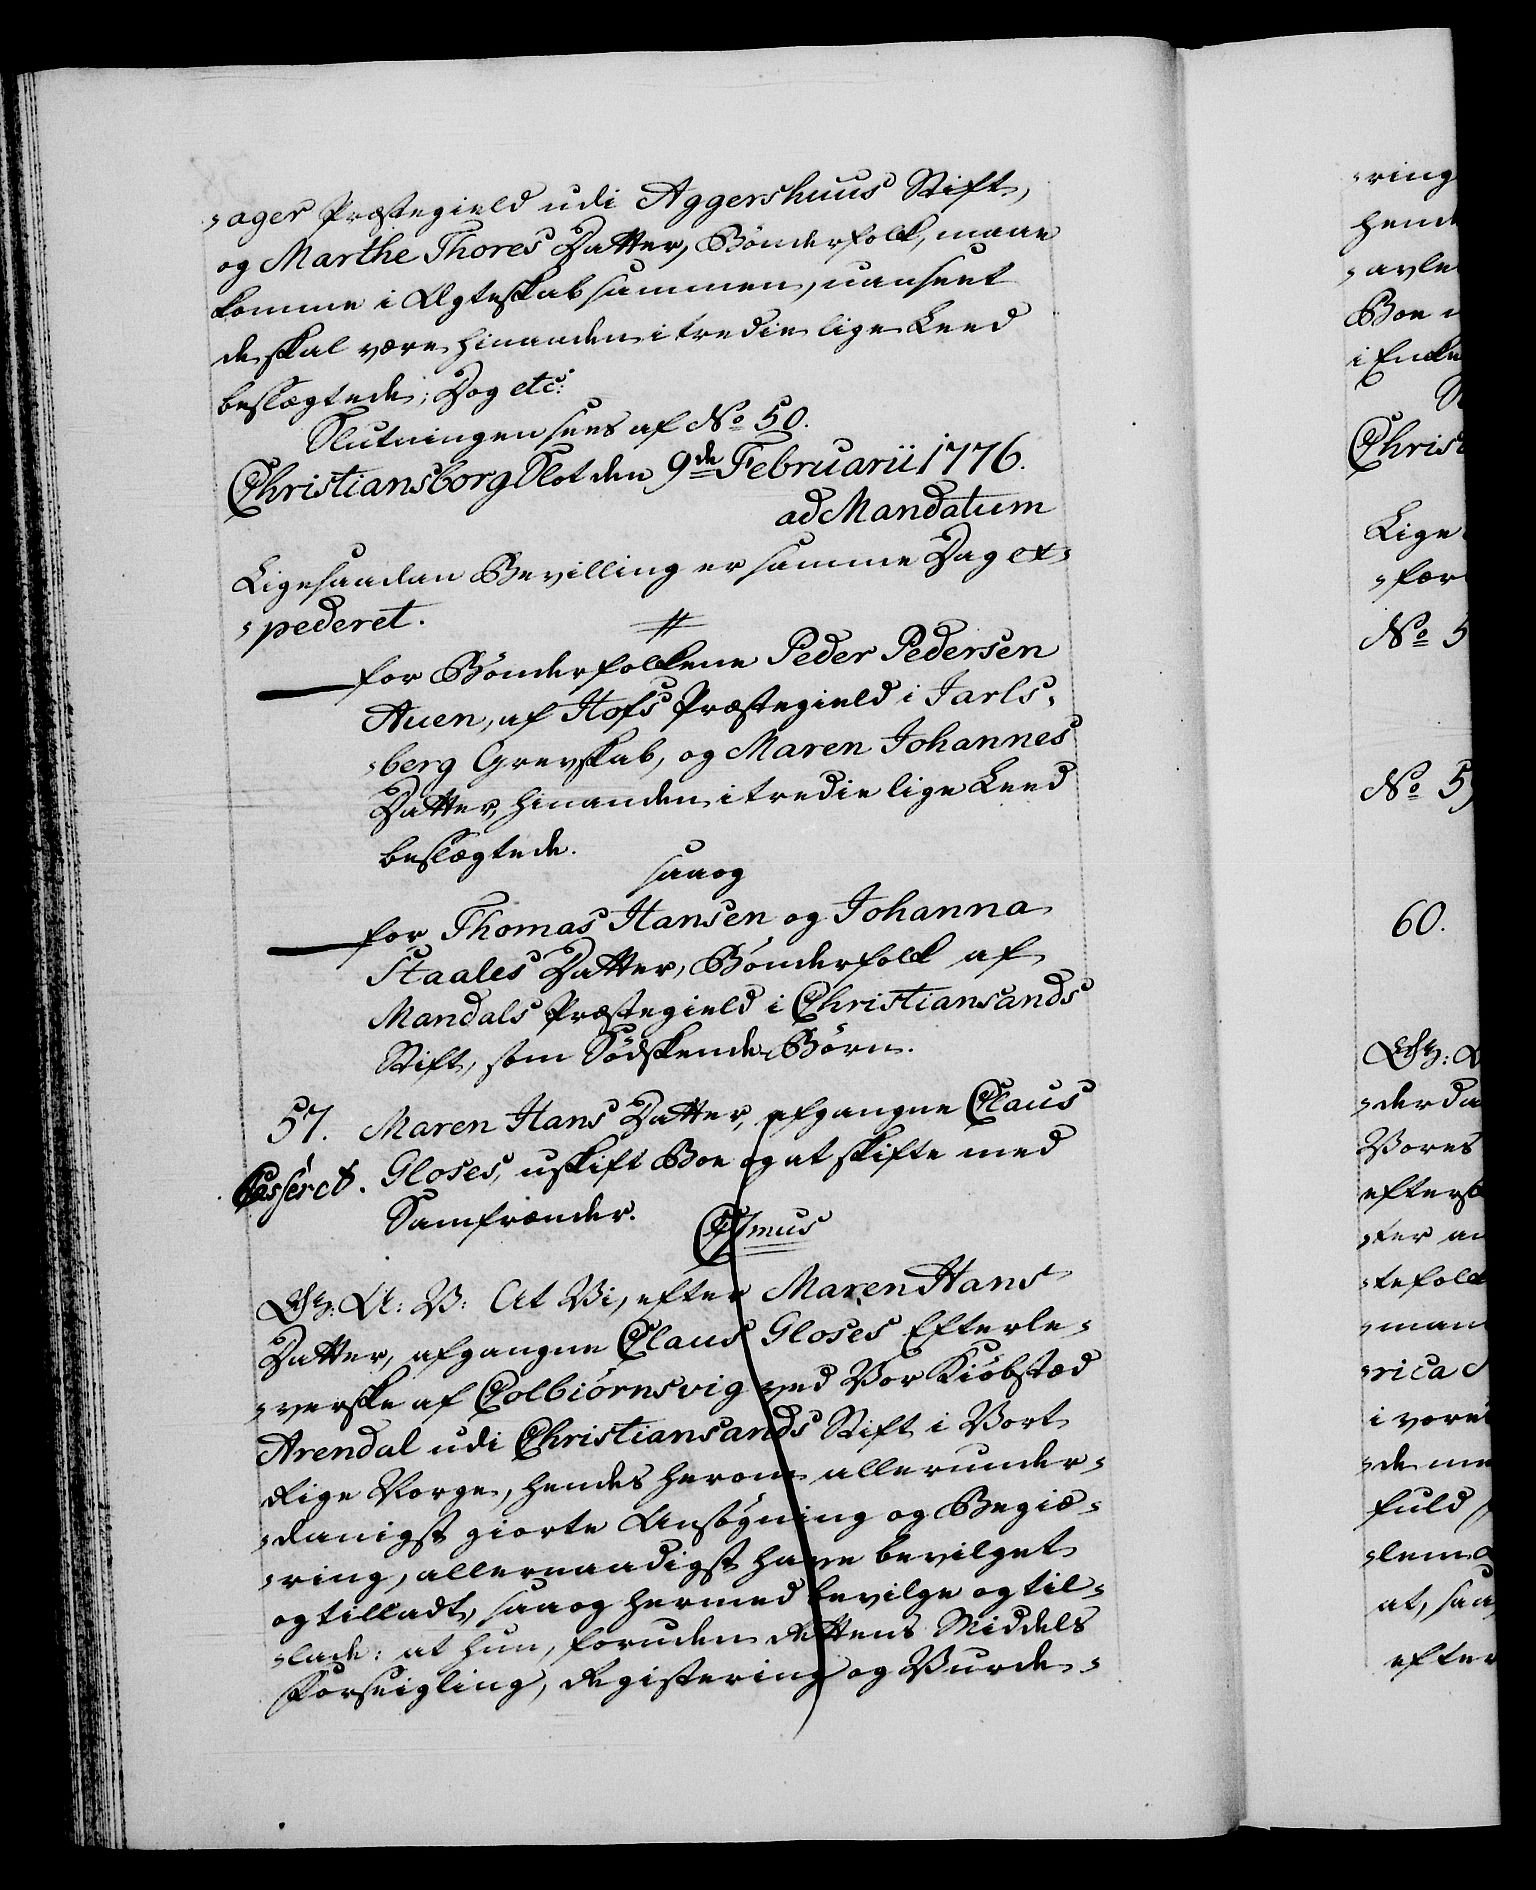 -ager Præstegield udi Aggershuus Stift,
og Marthe Thores Datter, Bønderfolk, maae
komme i Ægteskab sammen, uanseet
de skal være hinanden i tredie lige Leed
beslægtede; Dog etc:
Slutningen sees af No 50.
Christiansborg Slot den 9de Februarii 1776.
ad Mandatum
Ligesaadan Bevilling er samme Dag ex-
-pederet.
for Bønderfolkene Peder Pedersen
Auen, af Hofs Præstegield i Jarls-
-berg Grevskab, og Maren Johannes
Datter, hinanden i tredie lige Leed
beslægtede.
saa og
for Thomas Hansen og Johanna
Staales Datter, Bønderfolk af
Mandals Præstegield i Christiansands
Stift, som Södskende-Børn.
57. Maren Hans Datter, afgangne Claus
Casseret. Gloses, uskift Boe og at skifte med
Samfrænder.
Csmus
G: A: V: At Vi, efter Maren Hans
Datter, afgangne Claus Gloses Efterle-
-verske af Colbiörnsvig ved Vor Kiöbstæd
Arendal udi Christiansands Stift i Vort
Rige Norge, hendes herom allerunder-
-danigst giorte Ansøgning og Begiæ-
-ring, allernaadigst have bevilget
og tilladt, saa og hermed bevilge og til-
-lade: at hun, foruden Rettens Middels
Forseigling, Registering og Vurde-
-ring
hend
-avle
Boe
i Enke
Christ
Lige
-fær
No 5
No 5
60.
-der da
Vores
efters
-ter
-tefolk
-man
-rica
i vore
-de me
fuld
-lem
at, saa
efter